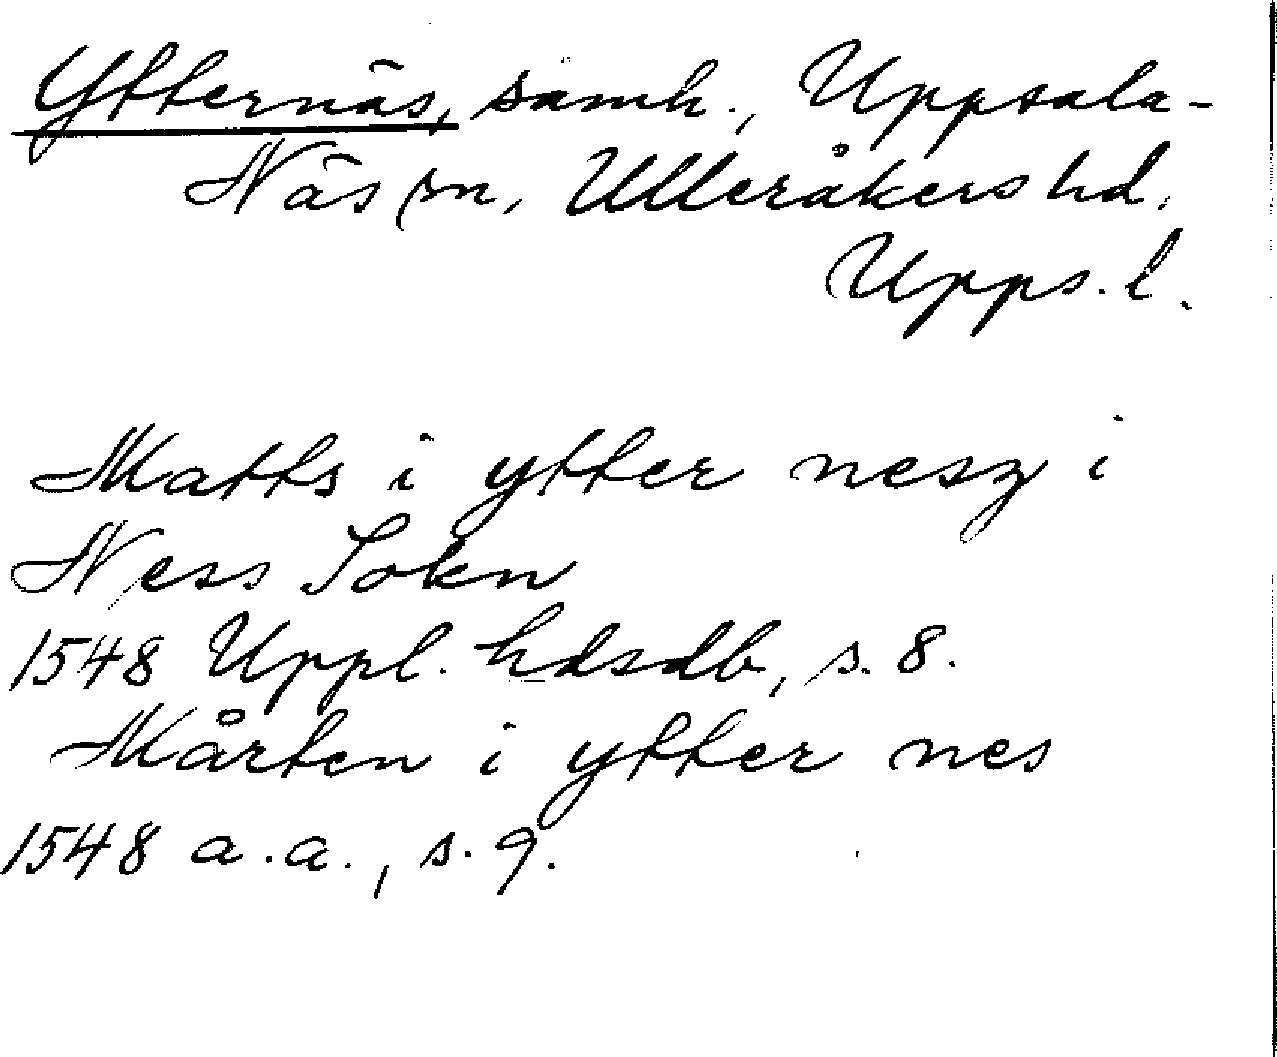 Ytternäs, samh., Uppsala-
Näs sn, Ulleråkers hd,
Upps. l.
Matts i ytter nesz i
Ness Sokn
1548 Uppl. hdsdb, s. 8.
Mårten i ytter nes
1548 a.a., s. 9.